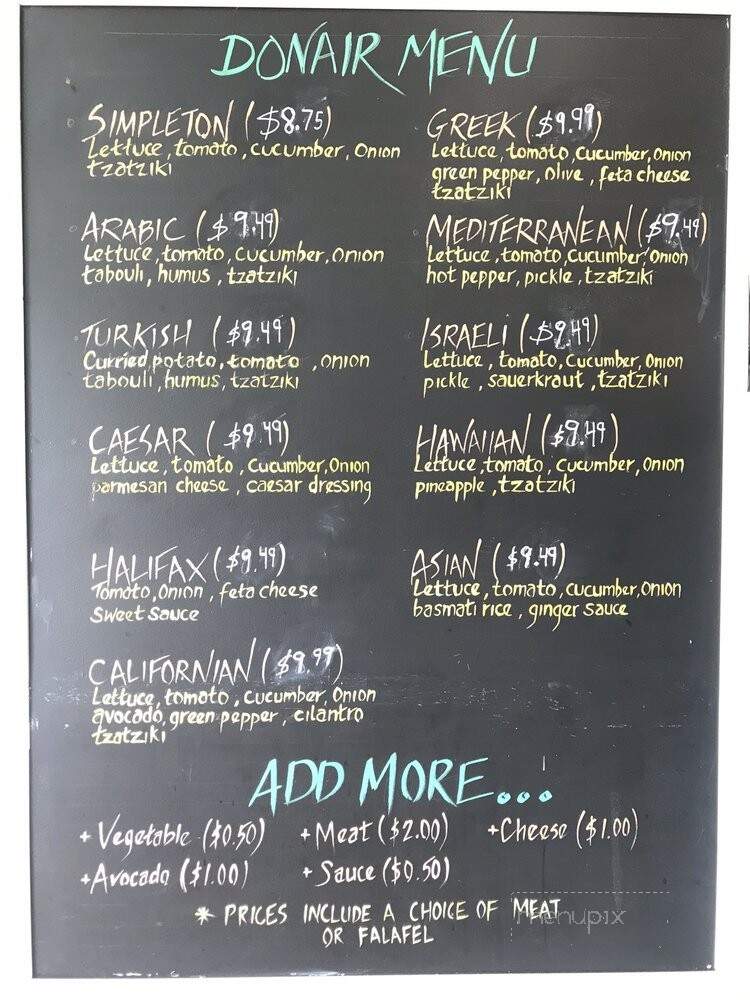 DONAIR MENU
SIMPLETON ($8.75)
Lettuce, tomato, cucumber, onion
tzatziki
ARABIC ($9.49)
Lettuce, tomato, cucumber, onion
tabouli, humus, tzatziki
TURKISH ($9.49)
Curried potato, tomato, onion
tabouli, humus, tzatziki
CAESAR ($9.49)
Lettuce, tomato, cucumber, onion
parmesan cheese, caesar dressing
HALIFAX ($9.49)
Tomato, onion, feta cheese
Sweet Sauce
CALIFORNIAN ($9.99)
Lettuce, tomato, cucumber, onion
avocado, green pepper, cilantro
tzatziki
GREEK ($9.99)
Lettuce, tomato, cucumber, onion
green pepper, olive, feta cheese
tzatziki
MEDITERRANEAN ($9.49)
Lettuce, tomato, cucumber, onion
hot pepper, pickle, tzatziki
ISRAELI ($9.49)
Lettuce, tomato, cucumber, onion
pickle, sauerkraut, tzatziki
HAWAIIAN ($9.49)
Lettuce, tomato, cucumber, onion
pineapple, tzatziki
ASIAN ($9.49)
Lettuce, tomato, cucumber, onion
basmati rice, ginger sauce
ADD MORE...
+ Vegetable ($0.50) + Meat ($2.00) + Cheese ($1.00)
+ Avocado ($1.00) + Sauce ($0.50)
* PRICES INCLUDE A CHOICE OF MEAT
OR FALAFEL
menupix